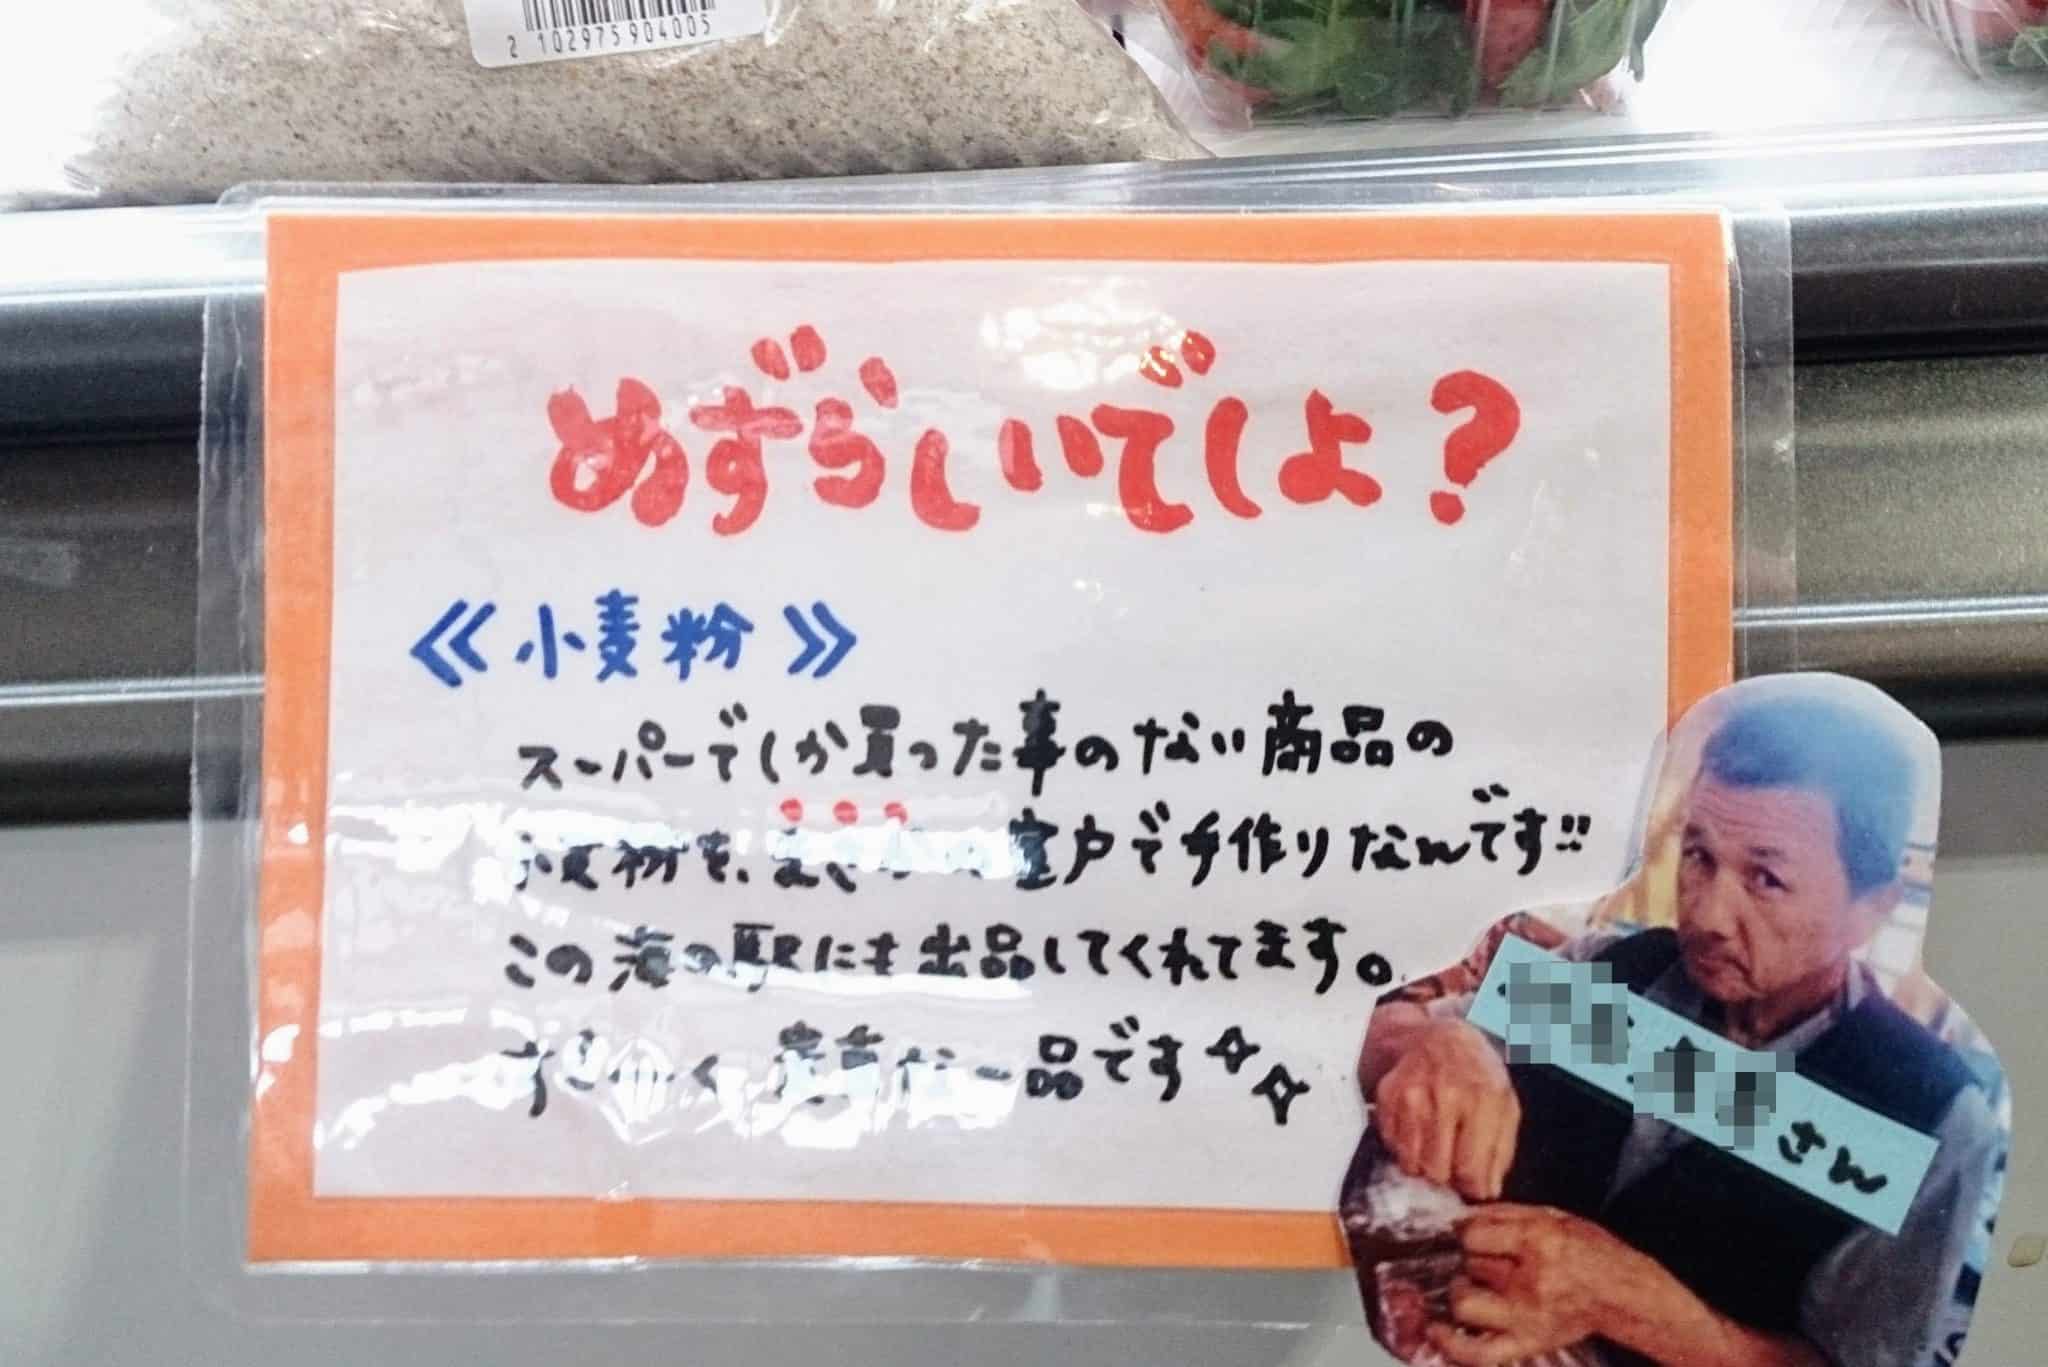 2 102975 904005
めずらしいでしょ？
《小麦粉》
スーパーでしか買った事のない商品の
小麦粉を、まさかの室戸で手作りなんです!!
この海の駅にも出品してくれてます。
すごく 貴重な一品です☆☆
さん